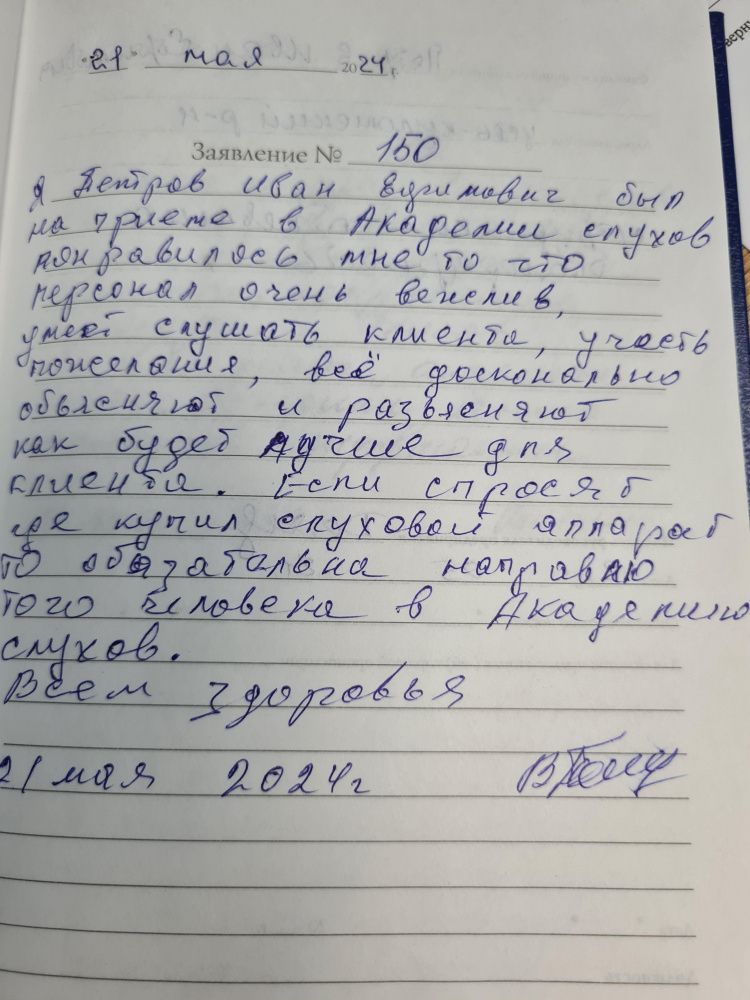 "21" мая 2024 г.
Заявление № 150
Я Петров Иван был
на приеме в Академии слухов
понравилось мне то что
персонал очень вежлив,
умеет слушать клиента, учесть
пожелания, всё досконально
объясняют и разъясняют
как будет лучше для
клиента. Если спросят
где купил слуховой аппарат
то обязательна направлю
того человека в Академию
слухов.
Всем здоровья
21 мая 2024г